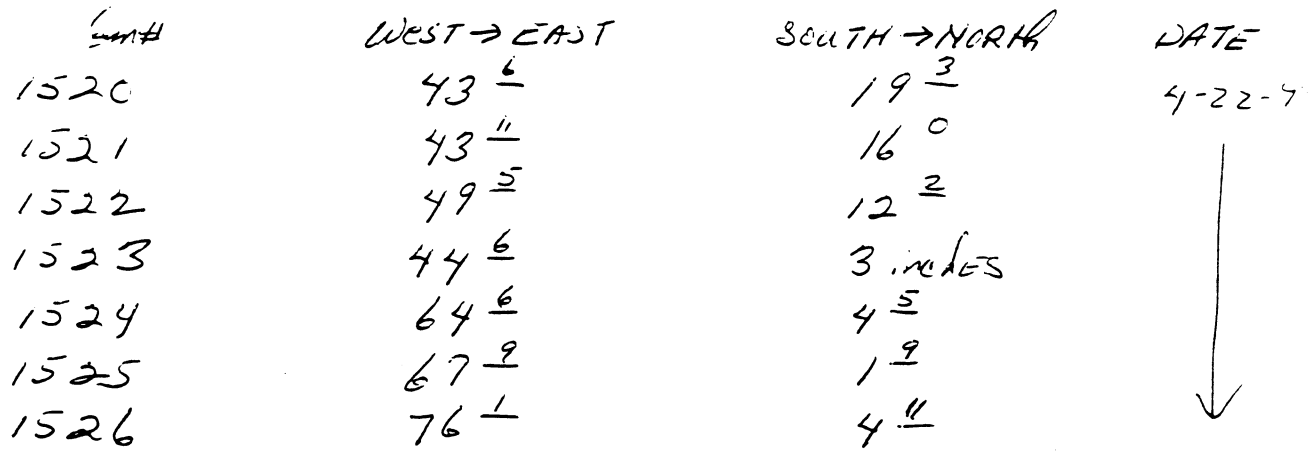 WEST → EAST SOUTH → NORTH DATE
1520 43 6 19 3 4-22-9
1521 43 11 16 0
1522 49 5 12 2
1523 44 6 3 inches
1524 64 6 4 5
1525 67 9 1 9
1526 76 1 4 11